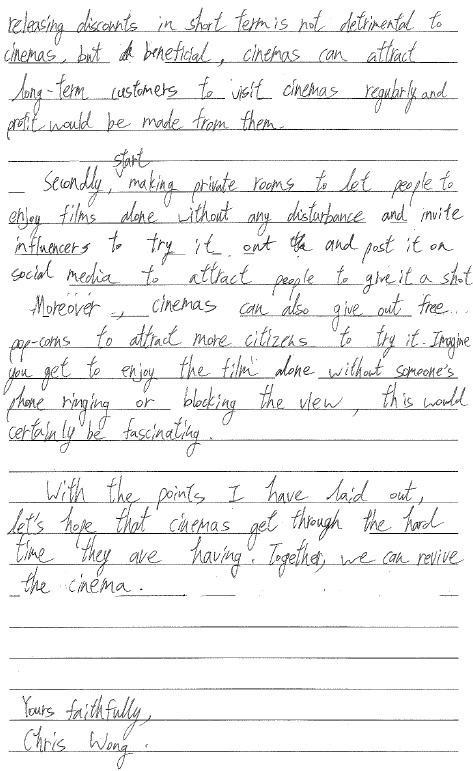 releasing discounts in short term is not detrimental to
cinemas, but beneficial, cinemas can attract
long-term customers to visit cinemas regularly and
profit would be made from them.
start
Secondly, making private rooms to let people to
enjoy films alone without any disturbance and invite
influencers to try it out and post it on
social media to attract people to give it a shot
Moreover, cinemas can also give out free
pop-corns to attract more citizens to try it. Imagine
you get to enjoy the film alone without someone's
phone ringing or blocking the view, this would
certainly be fascinating.
With the points I have laid out,
let's hope that cinemas get through the hard
time they are having. Together, we can revive
the cinema.
Yours faithfully,
Chris Wong.